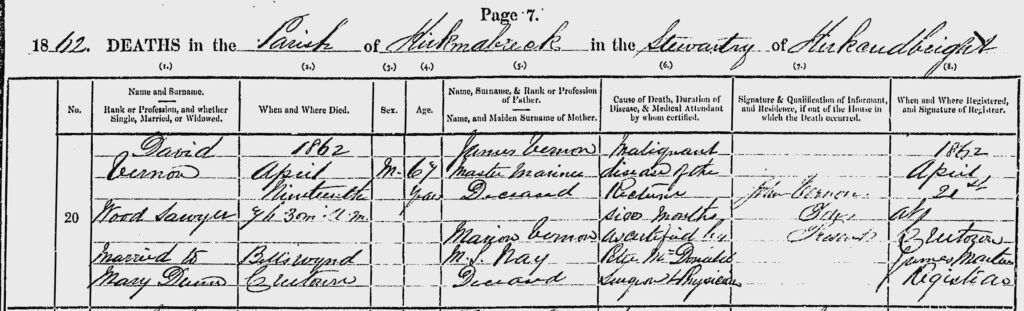 Page 7.
1862. DEATHS in the Parish of Kirkmabreck in the Stewartry of Kirkcudbright
(1.) (2.) (3.) (4.) (5.) (6.) (7.) (8.)
No.
Name and Surname.
Rank or Profession, and whether
Single, Married, or Widowed.
When and Where Died.
Sex.
Age.
Name, Surname, & Rank or Profession
of Father.
Name, and Maiden Surname of Mother.
Cause of Death, Duration of
Disease, & Medical Attendant
by whom certified.
Signature & Qualification of Informant,
and Residence, if out of the House in
which the Death occurred.
When and Where Registered,
and Signature of Registrar.
20
David
Vernon
Wood Sawyer
Married to
Mary Dunn
1862
April
Nineteenth
7h 30m A.M.
Creetown
M.
67
Years
James Vernon
Master Mariner
Deceased
Marion Vernon
M.S. Hay
Deceased
Malignant
disease of the
Rectum
six months
As certified by
Peter McDonald
Surgeon & Physician
John Vernon
Present
1862
April
21st
At
Creetown
James
Registrar